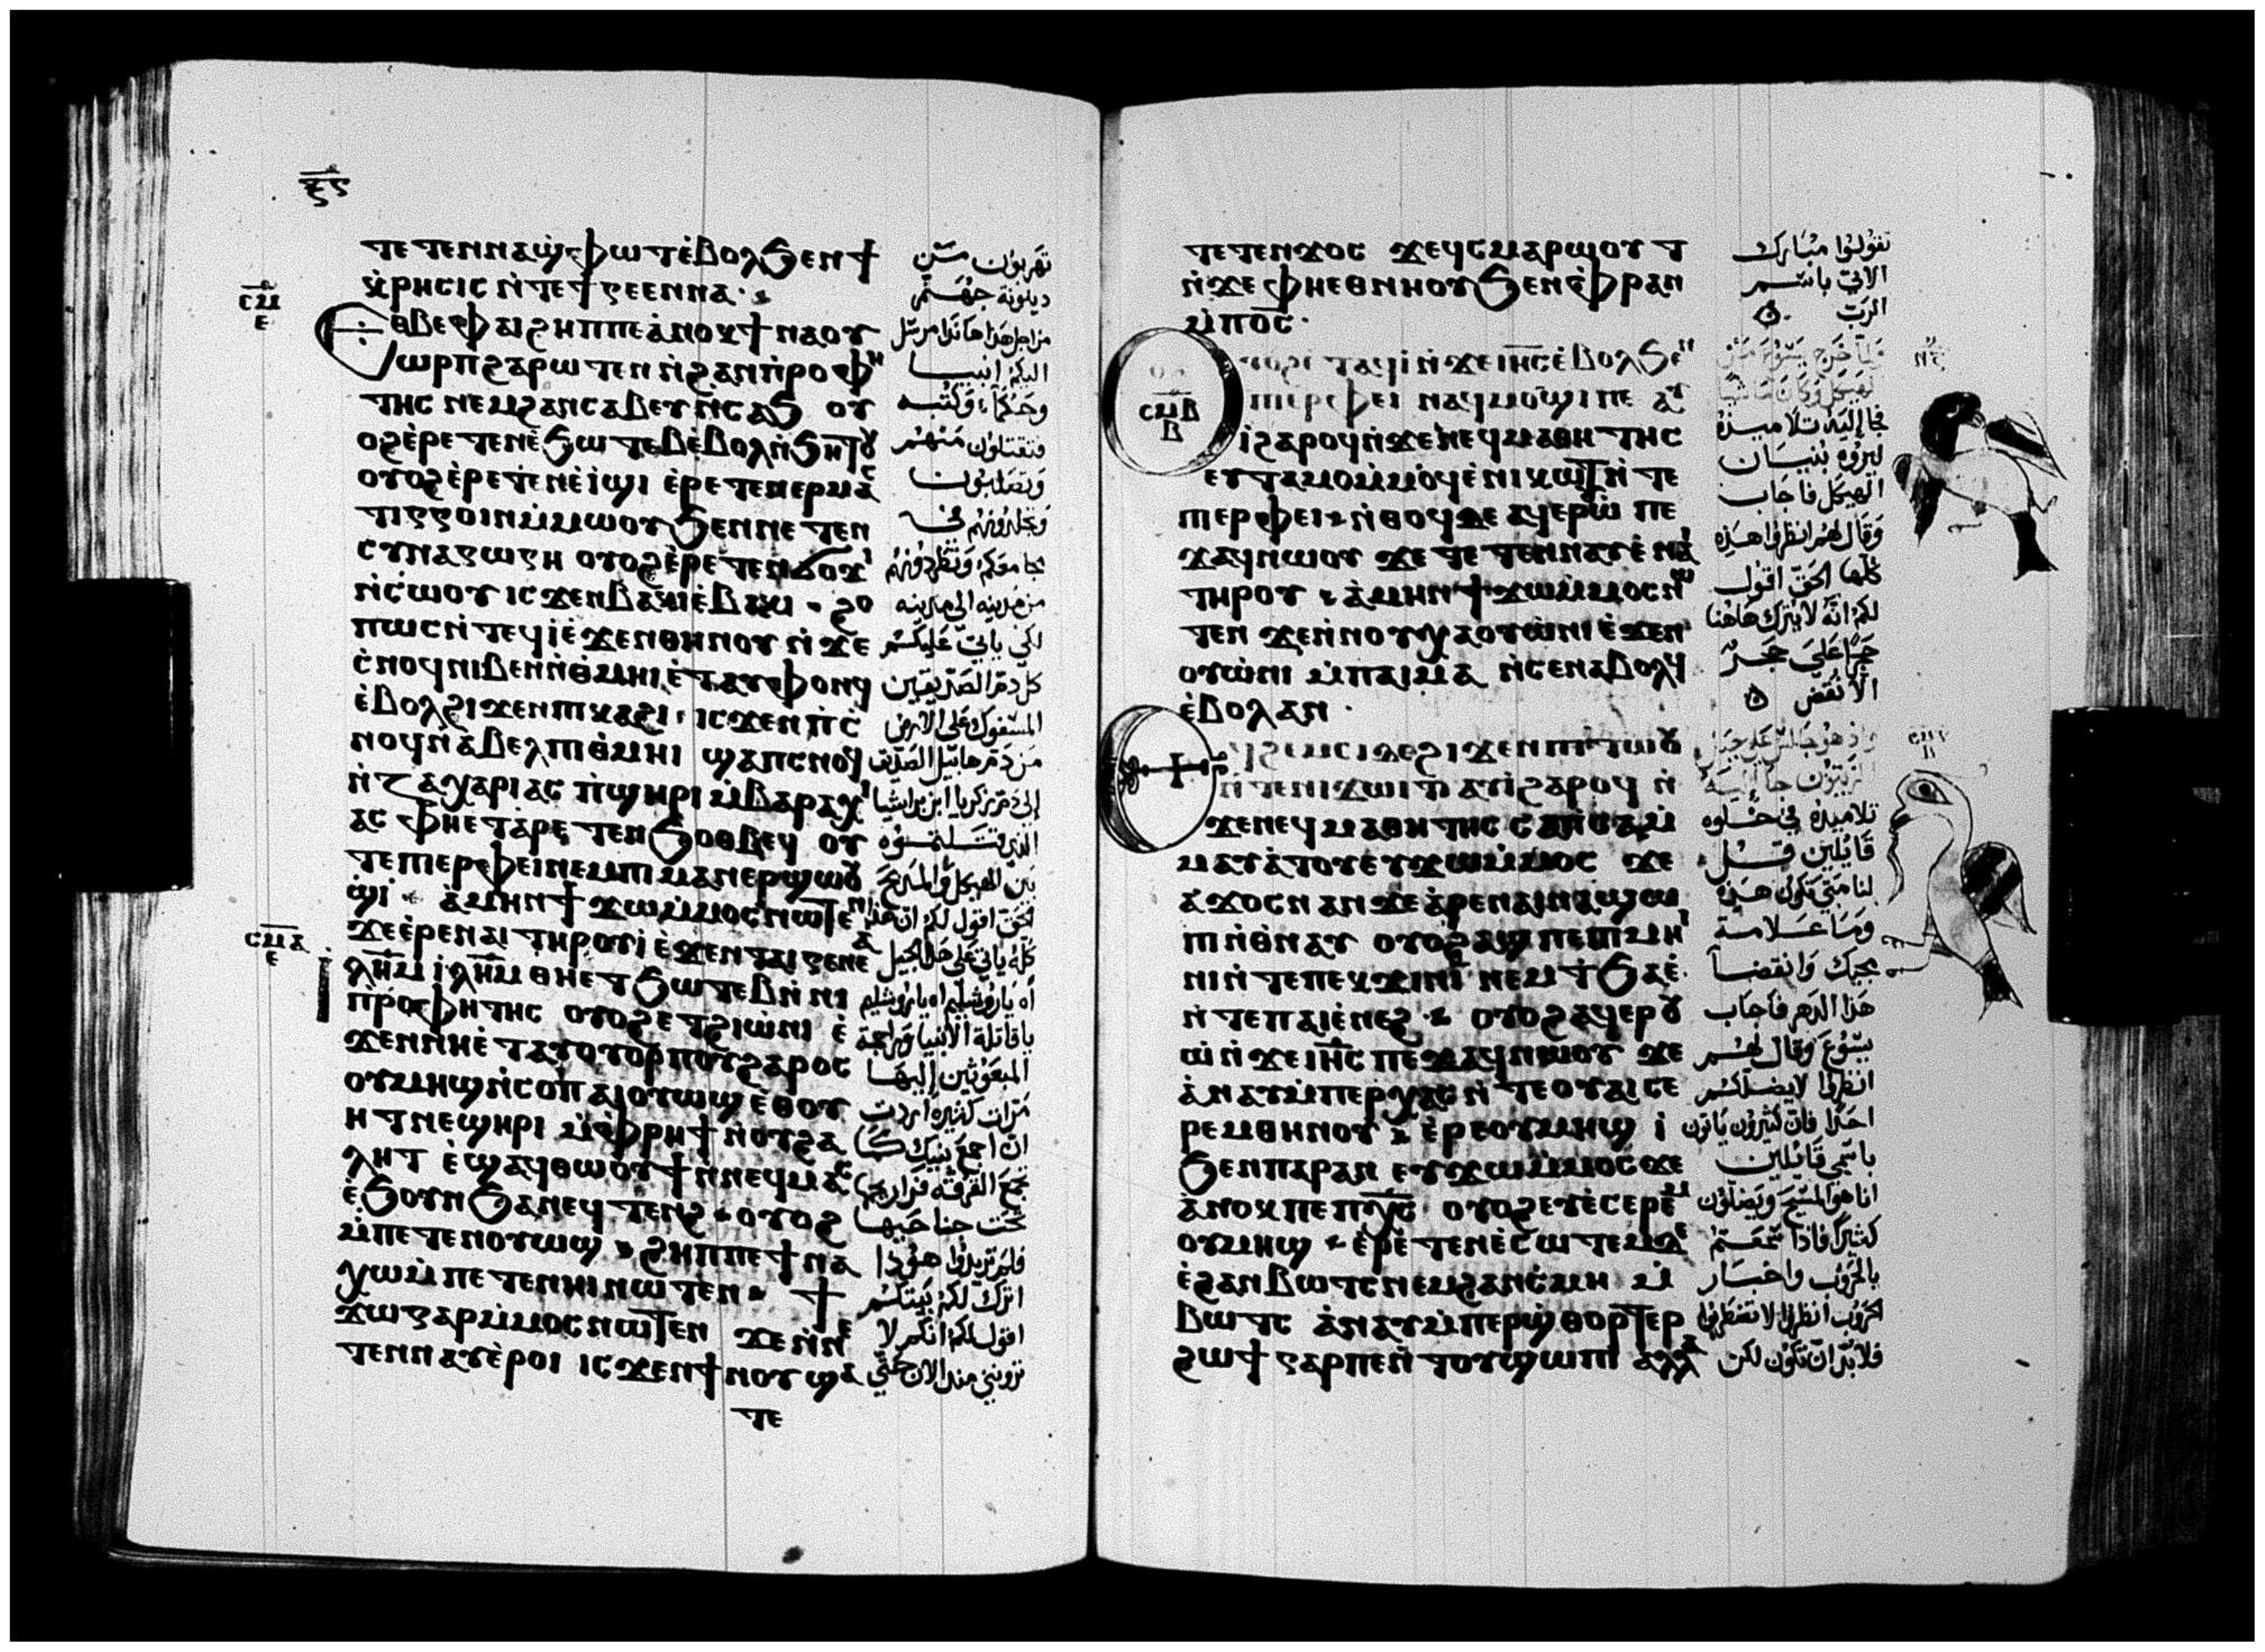 ⲝ̅ⲋ̅
ⲧⲉⲧⲉⲛⲛⲁϣ̀ⲫⲱⲧ ⲉ̀ⲃⲟⲗϧⲉⲛϯ
ⲕ̀ⲣⲏⲥⲓⲥ ⲛ̀ⲧⲉϯⲅⲉⲉⲛⲛⲁ
ⲥⲙⲁ
ⲉ
ⲉⲑⲃⲉⲫⲁⲓ ϩⲏⲡⲡⲉ ⲁ̀ⲛⲟⲕ ϯⲛⲁⲟⲩ
ⲱⲣⲡ ϩⲁⲣⲱⲧⲉⲛ ⲛ̀ϩⲁⲛⲡ̀ⲣⲟⲫⲏ
ⲧⲏⲥ ⲛⲉⲙϩⲁⲛⲥⲁⲃⲉⲩ ⲛ̀ⲥⲁϧ ⲟⲩ
ⲟϩ ⲉ̀ⲣⲉⲧⲉⲛⲉ̀ϧⲱⲧⲉⲃ ⲉ̀ⲃⲟⲗⲛ̀ϧⲏⲧⲟⲩ
ⲟⲩⲟϩ ⲉ̀ⲣⲉⲧⲉⲛⲉ̀ⲓ̀ϣⲓ ⲉ̀ⲣⲉⲧⲉⲛⲉⲣⲙⲁⲥ
ⲧⲓⲅⲅⲟⲓⲛ ⲙ̀ⲙⲱⲟⲩ ϧⲉⲛⲛⲉⲧⲉⲛ
ⲥⲩⲛⲁⲅⲱⲅⲏ ⲟⲩⲟϩ ⲉ̀ⲣⲉⲧⲉⲛϭⲟϫⲓ
ⲛ̀ⲥⲱⲟⲩ ⲓⲥϫⲉⲛⲃⲁⲕⲓ ⲉ̀ⲃⲁⲕⲓ ϩⲟ
ⲡⲱⲥ ⲛ̀ⲧⲉϥⲓ̀ ⲉ̀ϫⲉⲛⲑⲏⲛⲟⲩ ⲛ̀ϫⲉ
ⲥ̀ⲛⲟϥ ⲛⲓⲃⲉⲛ ⲛ̀ⲑ̀ⲙⲏⲓ ⲉ̀ⲧⲁⲩⲫⲟⲛϥ
ⲉ̀ⲃⲟⲗϩⲓϫⲉⲛⲡⲓⲕⲁϩⲓ ⲓⲥϫⲉⲛⲡ̀ⲥ̀
ⲛⲟϥ ⲛ̀ⲁ̀ⲃⲉⲗ ⲡⲓⲑ̀ⲙⲏⲓ ϣⲁⲡⲥⲛⲟϥ
ⲛ̀ⲍⲁⲭⲁⲣⲓⲁⲥ ⲡ̀ϣⲏⲣⲓ ⲙ̀ⲃⲁⲣⲁⲭⲓ
ⲁⲥ ⲫⲏⲉⲧⲁ̀ⲣⲉⲧⲉⲛϧⲟⲑⲃⲉϥ ⲟⲩ
ⲧⲉ ⲡⲓⲉⲣⲫⲉⲓ ⲛⲉⲙⲡⲓⲙⲁⲛⲉⲣϣⲱⲟⲩ
ϣⲓ ⲁ̀ⲙⲏⲛ ϯϫⲱⲙ̀ⲙⲟⲥ ⲛⲱⲧⲉⲛ
ϫⲉⲉ̀ⲣⲉⲛⲁⲓ ⲧⲏⲣⲟⲩ ⲓ̀ ⲉ̀ϫⲉⲛⲧⲁⲓⲅⲉⲛⲉⲁ
ⲥⲙⲁ
ⲉ
ⲓⲗⲏⲙ ⲓ̀ⲗⲏⲙ ⲑⲏⲉⲧϧⲱⲧⲉⲃ ⲛ̀ⲛⲓ
ⲡ̀ⲣⲟⲫⲏⲧⲏⲥ ⲟⲩⲟϩ ⲉⲧϩⲓⲱ̀ⲛⲓ ⲉ̀
ϫⲉⲛⲛⲏⲉ̀ⲧⲁⲩⲟⲩⲟⲣⲡⲟⲩ ϩⲁⲣⲟⲥ
ⲟⲩⲙⲏϣ ⲛ̀ⲥⲟⲡ ⲁⲓⲟⲩⲱϣ ⲉ̀ⲑⲟⲩ
ⲏⲧ ⲛⲉϣⲏⲣⲓ ⲙ̀ⲫ̀ⲣⲏϯ ⲛ̀ⲟⲩϩⲁ
ⲗⲏⲧ ⲉ̀ϣⲁϥⲑⲱⲟⲩϯ ⲛ̀ⲛⲉϥⲙⲁⲥ
ⲉ̀ϧⲟⲩⲛ ϧⲁⲛⲉϥⲧⲉⲛϩ ⲟⲩⲟϩ
ⲙ̀ⲡⲉⲧⲉⲛⲟⲩⲱϣ ϩⲏⲡⲡⲉ ϯⲛⲁ
ⲭⲱ ⲙ̀ⲡⲉⲧⲉⲛⲏⲓ ⲛⲱⲧⲉⲛ ϯ
ϫⲱ ⲅⲁⲣ ⲙ̀ⲙⲟⲥ ⲛⲱⲧⲉⲛ ϫⲉⲛ̀ⲛⲉ
ⲧⲉⲛⲛⲁⲩ ⲉ̀ⲣⲟⲓ ⲓⲥϫⲉⲛϯⲛⲟⲩ ϣⲁ
ⲧⲉ
تهربون من
دينونة جهنم
من اجل هذا هانذا مرسل
اليكم انبيا
وحكماء وكتبه
فتقتلون منهم
وتصلبون
وتجلدونهم في
مجامعكم وتطردونهم
من مدينه الى مدينه
لكي ياتي عليكم
كل دم الصديقين
المسفوك على الارض
من دم هابيل الصديق
الى دم زكريا ابن براشيا
الذي قتلتموه
بين الهيكل والمذبح
الحق اقول لكم ان هذا
كله ياتي على هذا الجيل
اه يا روشليم اه يا روشليم
يا قاتلة الانبيا وراجمة
المبعوثين إليها
مرات كثيره اردت
ان اجمع بنيك كما
تجمع الفرخه فراريجها
تحت جناحيها
فلم تريدوا هوذا
اترك لكم بيتكم
اقول لكم انكم لا
تروني منذ الان حتى
ⲧⲉⲧⲉⲛϫⲟⲥ ϫⲉϥ̀ⲥⲙⲁⲣⲱⲟⲩⲧ
ⲛ̀ϫⲉⲫⲏⲉⲑⲛⲏⲟⲩ ϧⲉⲛⲫ̀ⲣⲁⲛ
ⲙ̀ⲡⲟ̅ⲥ̅
ⲥⲙⲃ
ⲃ
ⲧⲁϥⲓ̀ ⲛ̀ϫⲉⲓⲏ̅ⲥ̅ ⲉ̀ⲃⲟⲗϧⲉⲛ
ⲡⲓⲉⲣⲫⲉⲓ ⲛⲁϥⲙⲟϣⲓ ⲡⲉ ⲁⲩ
ⲓ̀ ϩⲁⲣⲟϥ ⲛ̀ϫⲉⲛⲉϥⲙⲁⲑⲏⲧⲏⲥ
ⲉⲩⲧⲁⲙⲟ ⲙ̀ⲙⲟϥ ⲉ̀ⲛⲓⲕⲱⲧ ⲛ̀ⲧⲉ
ⲡⲓⲉⲣⲫⲉⲓ ⲛ̀ⲑⲟϥ ⲇⲉ ⲁϥⲉⲣⲟⲩⲱ̀ ⲡⲉ
ϫⲁϥ ⲛⲱⲟⲩ ϫⲉ ⲧⲉⲧⲉⲛⲛⲁⲩ ⲉ̀ⲛⲁⲓ
ⲧⲏⲣⲟⲩ ⲁ̀ⲙⲏⲛ ϯϫⲱⲙ̀ⲙⲟⲥ ⲛⲱ
ⲧⲉⲛ ϫⲉⲛ̀ⲛⲟⲩⲭⲁⲟⲩⲱ̀ⲛⲓ ⲉ̀ϫⲉⲛ
ⲟⲩⲱ̀ⲛⲓ ⲙ̀ⲡⲁⲓⲙⲁ ⲛ̀ⲥⲉⲛⲁⲃⲟⲗϥ
ⲉ̀ⲃⲟⲗⲁⲛ
ϩⲓϫⲉⲛⲡⲓⲧⲱⲟⲩ
ⲛ̀ⲧⲉⲛⲓϫⲱⲓⲧ ⲁⲩⲓ̀ ϩⲁⲣⲟϥ ⲛ̀
ϫⲉⲛⲉϥⲙⲁⲑⲏⲧⲏⲥ ⲥⲁⲡ̀ⲥⲁ ⲙ̀
ⲙⲁⲩⲁ̀ⲧⲟⲩ ⲉⲩϫⲱⲙ̀ⲙⲟⲥ ϫⲉ
ⲁ̀ϫⲟⲥ ⲛⲁⲛ ϫⲉⲁ̀ⲣⲉⲛⲁⲓ ⲛⲁϣⲱ
ⲡⲓ ⲛ̀ⲑ̀ⲛⲁⲩ ⲟⲩⲟϩ ⲁϣ ⲡⲉ ⲡⲓⲙⲏⲓ
ⲛⲓ ⲛ̀ⲧⲉⲡⲉⲕϫⲓⲛⲓ̀ ⲛⲉⲙ ϯϧⲁⲉ̀
ⲛ̀ⲧⲉⲡⲁⲓⲉ̀ⲛⲉϩ ⲟⲩⲟϩ ⲁϥⲉⲣⲟⲩ
ⲱ̀ ⲛ̀ϫⲉⲓⲏ̅ⲥ̅ ⲡⲉϫⲁϥ ⲛⲱⲟⲩ ϫⲉ
ⲁ̀ⲛⲁⲩ ⲙ̀ⲡⲉⲣⲭⲁⲥ ⲛ̀ⲧⲉⲟⲩⲁⲓ ⲥⲉ
ⲣⲉⲙ ⲑⲏⲛⲟⲩ ⲉ̀ⲣⲉⲟⲩⲙⲏϣ ⲓ̀
ϧⲉⲛⲡⲁⲣⲁⲛ ⲉⲩϫⲱⲙ̀ⲙⲟⲥ ϫⲉ
ⲁ̀ⲛⲟⲕ ⲡⲉ ⲡⲭ̅ⲥ̅ ⲟⲩⲟϩ ⲉⲩⲉ̀ⲥⲉⲣⲉⲙ
ⲟⲩⲙⲏϣ ⲉ̀ⲣⲉⲧⲉⲛⲉ̀ⲥⲱⲧⲉⲙ ⲇⲉ
ⲉ̀ϩⲁⲛⲃⲱⲧⲥ ⲛⲉⲙϩⲁⲛⲥ̀ⲙⲏ ⲙ̀
ⲃⲱⲧⲥ ⲁ̀ⲛⲁⲩ ⲙ̀ⲡⲉⲣϣ̀ⲑⲟⲣⲧⲉⲣ
ϩⲱϯ ⲅⲁⲣ ⲡⲉ ⲛ̀ⲧⲟⲩϣⲱⲡⲓ ⲁⲗⲗⲁ
تقولوا مبارك
الاتي باسم
الرب
فلما خرج يسوع من
الهيكل وكان ماشيا
جا إليه تلاميذه
ليروه بنيان
الهيكل فاجاب
وقال لهم انظروا هذه
كلها الحق اقول
لكم انه لا يترك هاهنا
حجرا على حجر
الا نقض
الزيتون جا إليه
تلاميذه في خلوه
قائلين قل
لنا متى تكون هذه
وما علامة
مجيك وانقضا
هذا الدهر فاجاب
يسوع وقال لهم
انظروا لا يضلكم
احدا فان كثيرون ياتون
باسمي قائلين
انا هو المسيح ويضلون
كثيرا فاذا سمعتم
بالحروب واخبار
الحروب انظروا لا تضطربوا
فلا بد ان تكون لكن